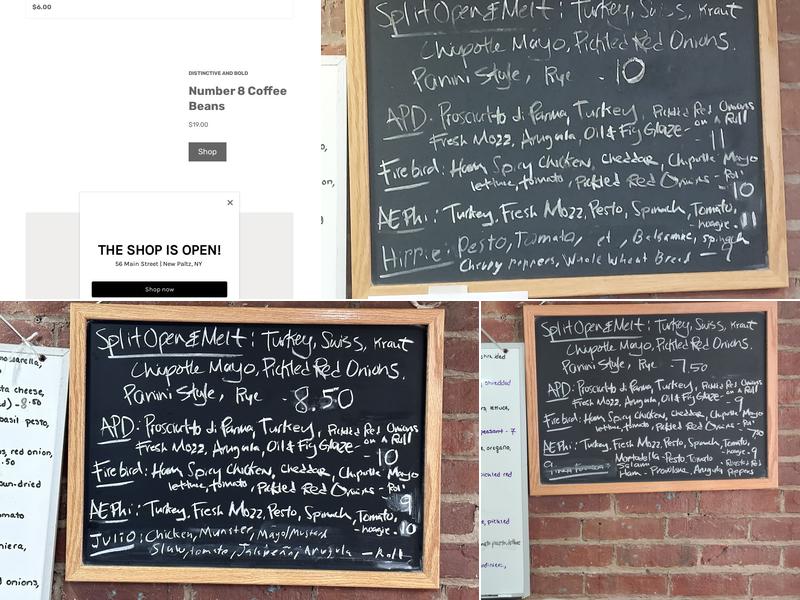 $6.00
DISTINCTIVE AND BOLD
Number 8 Coffee
Beans
$19.00
Shop
×
THE SHOP IS OPEN!
56 Main Street | New Paltz, NY
Shop now
Split Open & Melt: Turkey, Swiss, Kraut
Chipotle Mayo, Pickled Red Onions.
Panini Style, Rye - 10
APD: Prosciutto di Parma, Turkey, Pickled Red Onions
Fresh Mozz, Arugula, Oil & Fig Glaze - on a Roll
- 11
Firebird: Ham, Spicy Chicken, Cheddar, Chipotle Mayo
lettuce, tomato, Pickled Red Onions - Roll
- 10
AEPhi: Turkey, Fresh Mozz, Pesto, Spinach, Tomato,
- hoagie. 11
Hippie: Pesto, Tomato, Balsamic, spinach
Cherry peppers, Whole Wheat Bread - 9
mozzarella,
cheese,
- 8.50
basil pesto,
red onion,
.50
sun-dried
onions,
Split Open & Melt: Turkey, Swiss, Kraut
Chipotle Mayo, Pickled Red Onions.
Panini Style, Rye - 8.50
APD: Prosciutto di Parma, Turkey, Pickled Red Onions
Fresh Mozz, Arugula, Oil & Fig Glaze - on a Roll
- 10
Firebird: Ham, Spicy Chicken, Cheddar, Chipotle Mayo
lettuce, tomato, Pickled Red Onions - Roll
9
AEPhi: Turkey, Fresh Mozz, Pesto, Spinach, Tomato,
- hoagie. 10
Julio: Chicken, Munster, Mayo/Mustard
Slaw, tomato, Jalapeño, Arugula - Roll
shredded
lettuce,
- 7
oregano,
pickled red
pickled
Split Open & Melt: Turkey, Swiss, Kraut
Chipotle Mayo, Pickled Red Onions.
Panini Style, Rye - 7.50
APD: Prosciutto di Parma, Turkey, Pickled Red Onions
Fresh Mozz, Arugula, Oil & Fig Glaze - on a Roll
- 9
Firebird: Ham, Spicy Chicken, Cheddar, Chipotle Mayo
lettuce, tomato, Pickled Red Onions - Roll
AEPhi: Turkey, Fresh Mozz, Pesto, Spinach, Tomato,
- hoagie. 9
Mortadella - Pesto - Tomato - Roasted Red
Salami
Ham - Provolone, Arugula Peppers